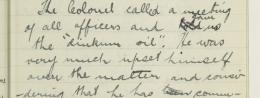 The Colonel called a meeting
of all officers and gave us
the "dinkum oil". He was
very much upset himself
over the matter and consi-
dering that he has comm-